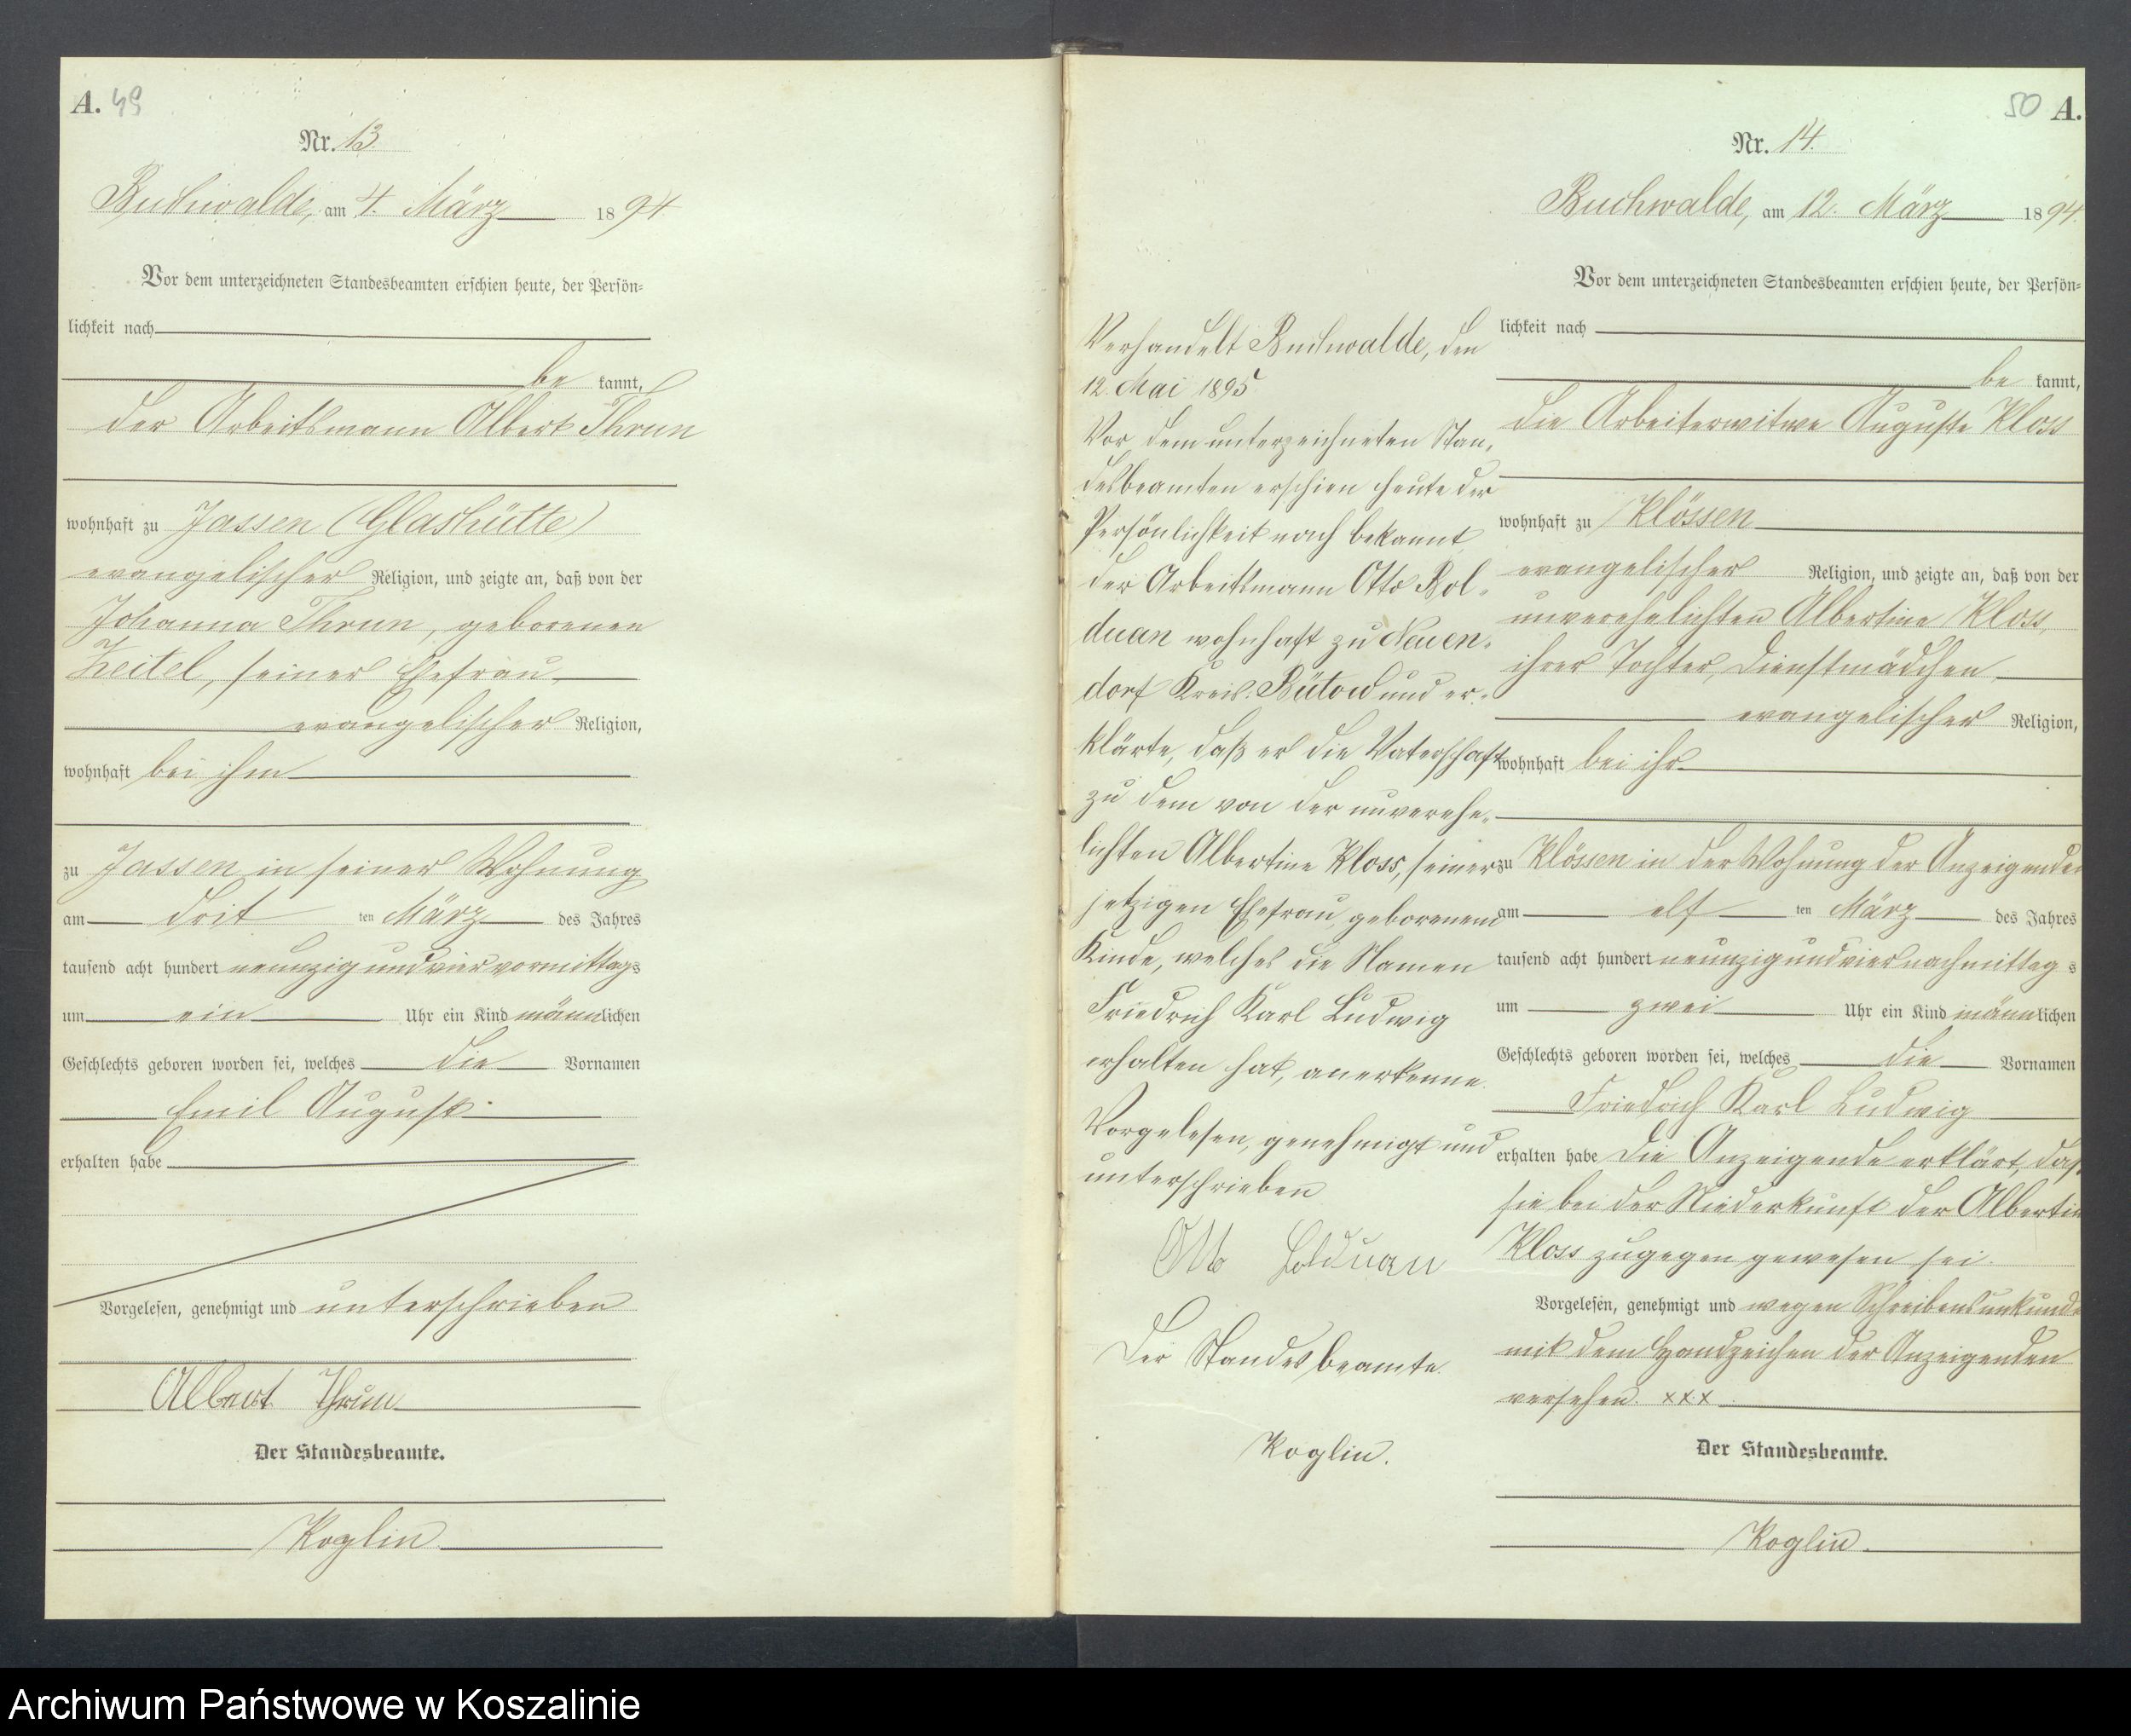 A. 49
Nr. 13.
Buchwalde, am 4. März 1894
Vor dem unterzeichneten Standesbeamten erschien heute, der Persön-
lichkeit nach
be kannt,
der Arbeitsmann Albert Thrun
wohnhaft zu Jassen (Glashütte)
evangelischer Religion, und zeigte an, daß von der
Johanna Thrun, geborenen
Zeitel, seiner Ehefrau,
evangelischer Religion,
wohnhaft bei ihm
zu Jassen in seiner Wohnung
am drit ten März des Jahres
tausend acht hundert neunzig und vier vormittags
um ein Uhr ein Kind männlichen
Geschlechts geboren worden sei, welches die Vornamen
Emil August
erhalten habe
Vorgelesen, genehmigt und unterschrieben
Albert Thrun
Der Standesbeamte.
Koglin.
50 A.
Nr. 14.
Buchwalde, am 12. März 1894.
Vor dem unterzeichneten Standesbeamten erschien heute, der Persön-
lichkeit nach
be kannt,
die Arbeiterwitwe Auguste Kloss
wohnhaft zu Klössen
evangelischer Religion, und zeigte an, daß von der
unverehelichten Albertine Kloss,
ihrer Tochter, Dienstmädchen
evangelischer Religion,
wohnhaft bei ihr
zu Klössen in der Wohnung der Anzeigenden
am elf ten März des Jahres
tausend acht hundert neunzig und vier nachmittag s
um zwei Uhr ein Kind männlichen
Geschlechts geboren worden sei, welches die Vornamen
Friedrich Karl Ludwig
erhalten habe Die Anzeigende erklärt, daß
sie bei der Niederkunft der Albertine
Kloss zugegen gewesen sei.
Vorgelesen, genehmigt und wegen Schreibensunkunde
mit dem Handzeichen der Anzeigenden
versehen. xxx
Der Standesbeamte.
Koglin.
Verhandelt Buchwalde, den
12. Mai 1895.
Vor dem unterzeichneten Stan-
desbeamten erschien heute der
Persönlichkeit nach bekannt
der Arbeitsmann Otto Bol-
duan wohnhaft zu Neuen-
dorf Kreis Bütow und er-
klärte, daß er die Vaterschaft
zu dem von der unverehe-
lichten Albertine Kloss, seiner
jetzigen Ehefrau, geborenem
Kinde, welches die Namen
Friedrich Karl Ludwig
erhalten hat, anerkenne.
Vorgelesen, genehmigt und
unterschrieben
Otto Bolduan
Der Standesbeamte.
Koglin.
Archiwum Państwowe w Koszalinie